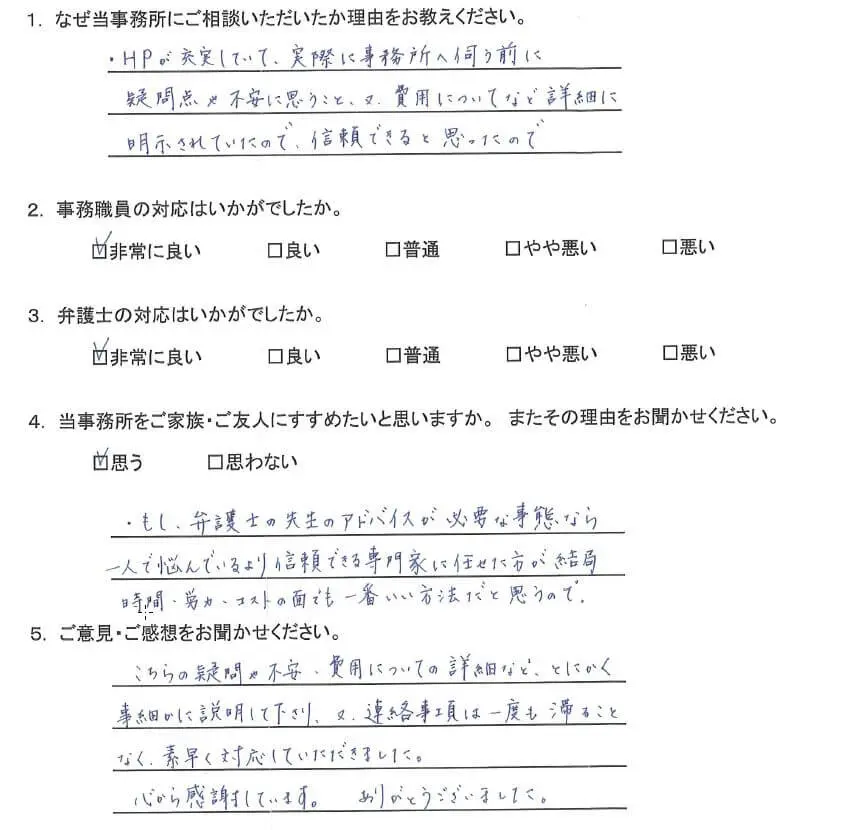 1. なぜ当事務所にご相談いただいたか理由をお教えください。
・HPが充実していて、実際に事務所へ伺う前に
疑問点や不安に思うこと、又、費用についてなど詳細に
明示されていたので、信頼できると思ったので
2. 事務職員の対応はいかがでしたか。
☑非常に良い □良い □普通 □やや悪い □悪い
3. 弁護士の対応はいかがでしたか。
☑非常に良い □良い □普通 □やや悪い □悪い
4. 当事務所をご家族・ご友人にすすめたいと思いますか。 またその理由をお聞かせください。
☑思う □思わない
・もし、弁護士の先生のアドバイスが必要な事態なら
一人で悩んでいるより信頼できる専門家に任せた方が結局
時間・労力・コストの面でも一番いい方法だと思うので。
5. ご意見・ご感想をお聞かせください。
こちらの疑問や不安、費用についての詳細など、とにかく
事細かに説明して下さり、又、連絡事項は一度も滞ること
なく、素早く対応していただきました。
心から感謝しています。 ありがとうございました。